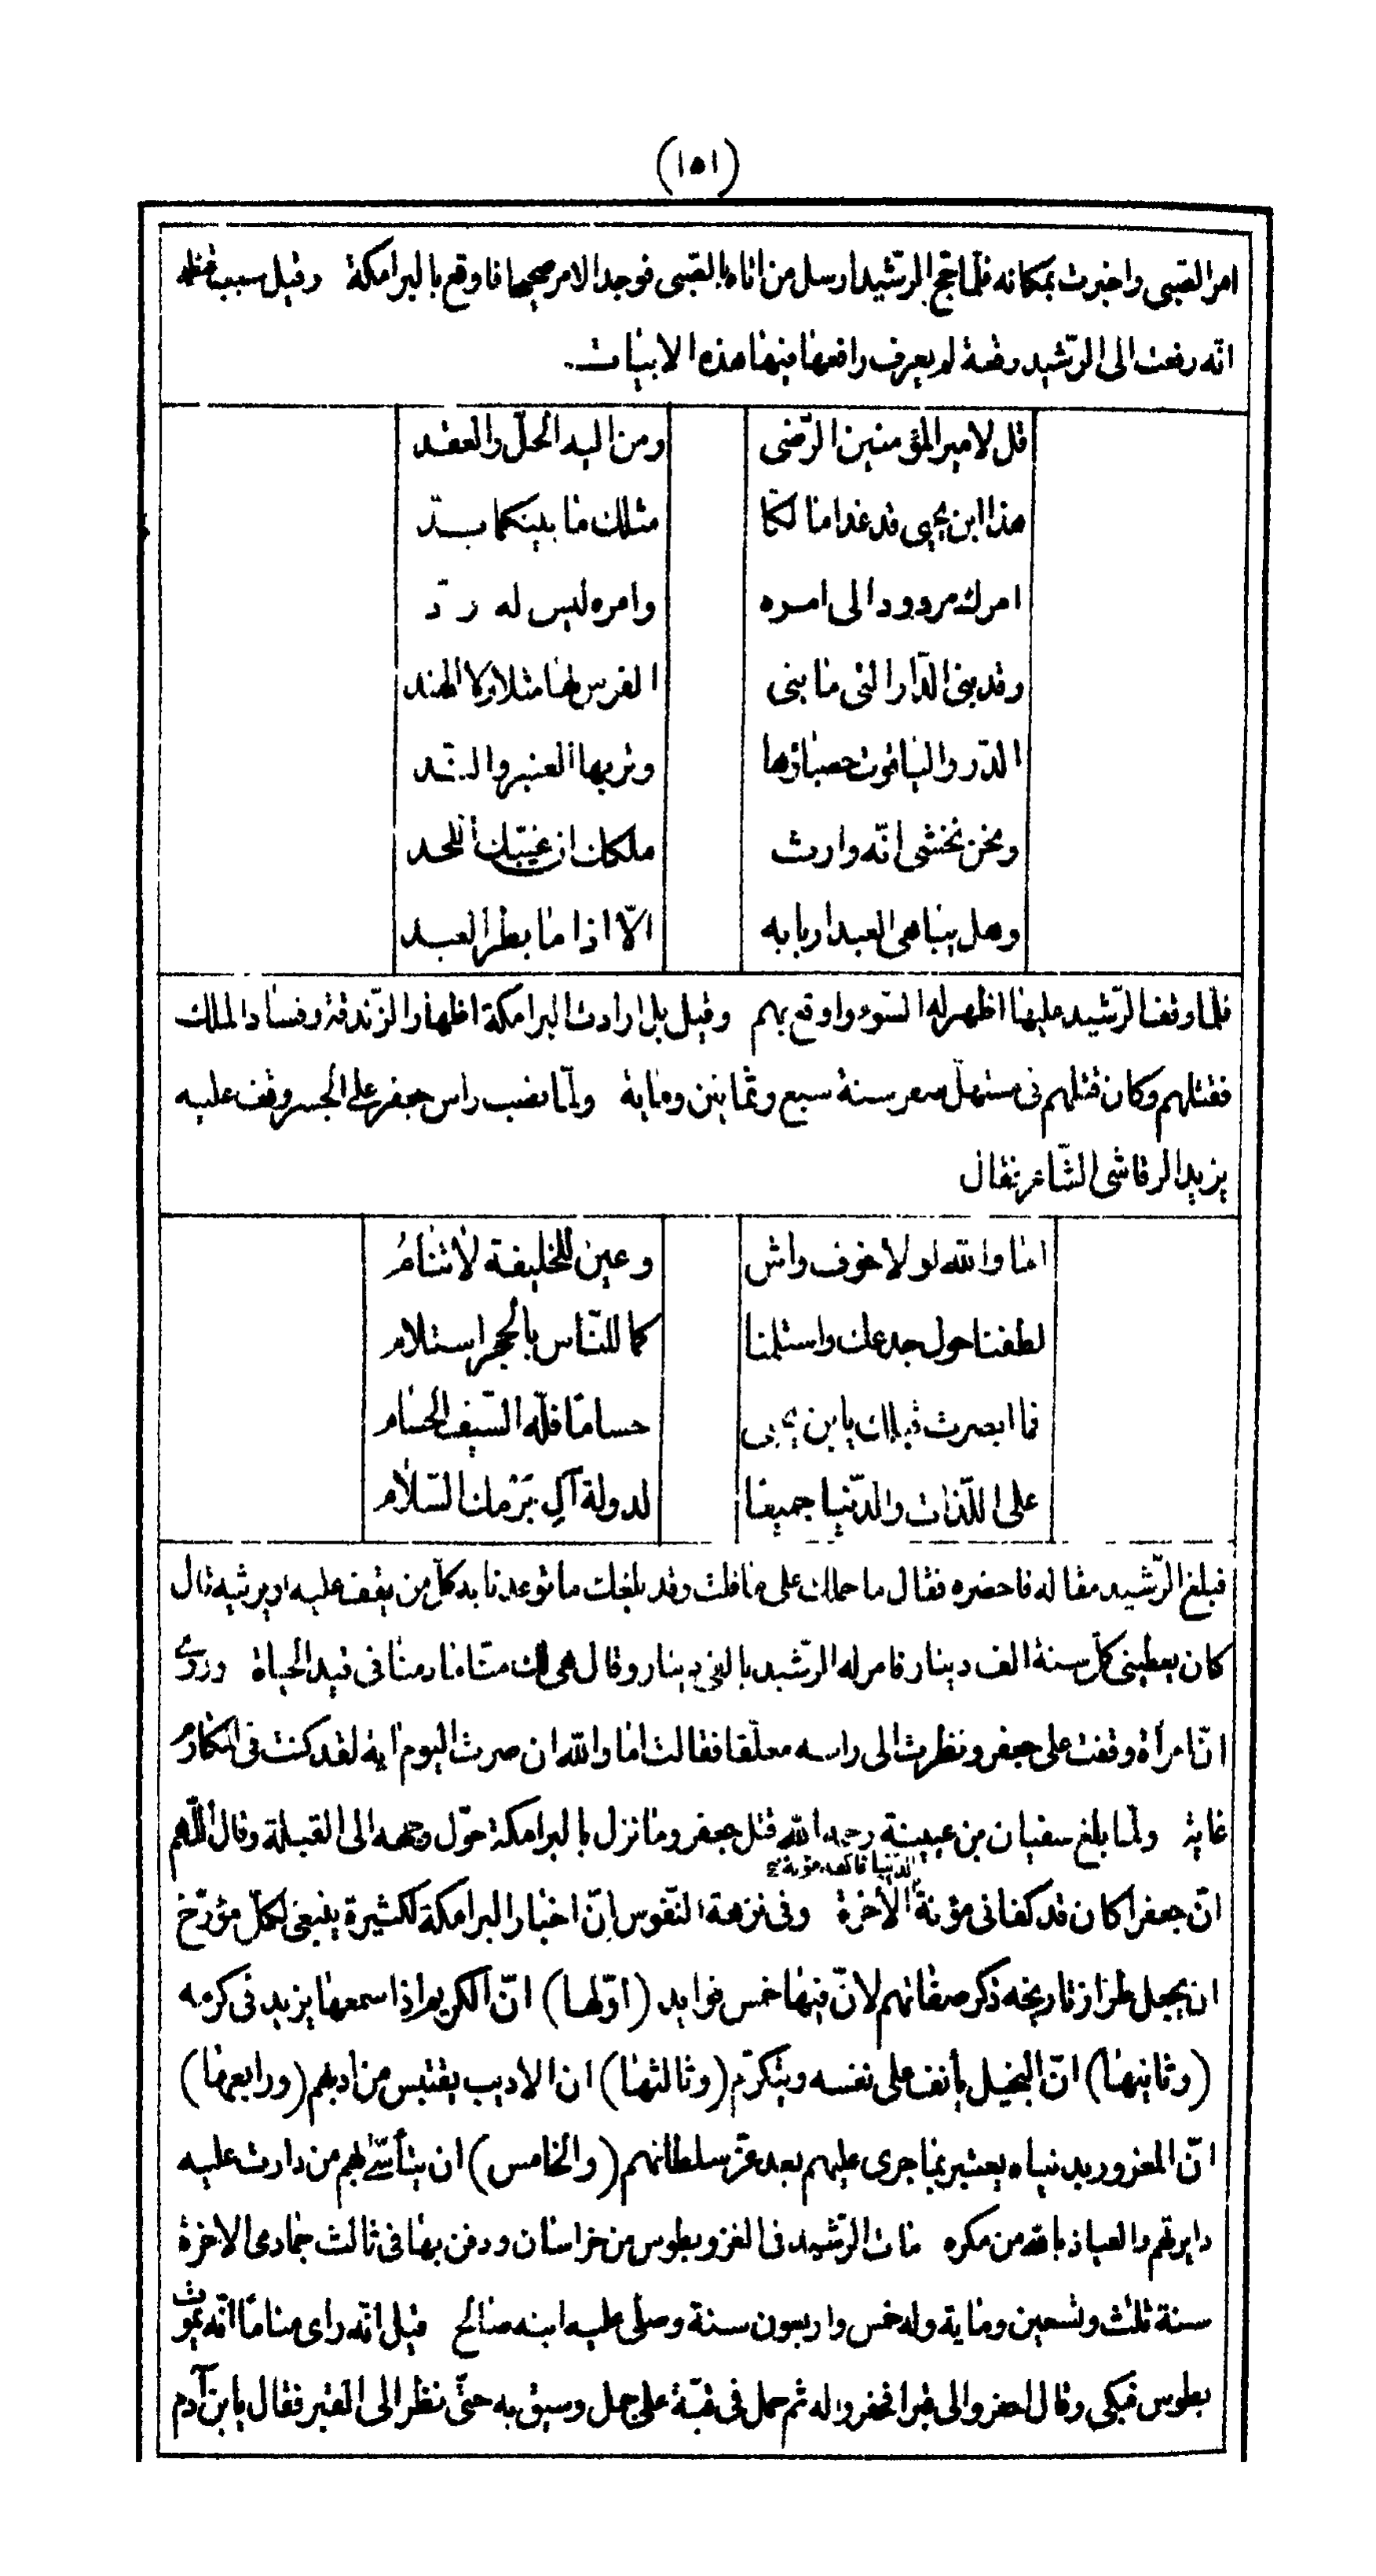 (١٥١)
امر الصّبى واخبرت بمكانه فلمّا حجّ الرّشيد أرسل من اتاه بالصّبى فوجد الامر صحيحا فاوقع بالبرامكة وقيل سبب قتله
انّه رفعت الى الرّشيد رقعة لم يعرف رافعها فيها هذه الابيات
قل لامير المؤمنين الرّضى ومن اليه الحلّ والعقد
هذا ابن يحيى قد غدا مالكا مثلك ما بينكما بدّ
امرك مردود الى امره وامره ليس له ردّ
وقد بنى الدّار التى ما بنى الفرس لها مثلا ولا الهند
الدّر والياقوت حصباؤها وتربها العنبر والندّ
ونحن نخشى انّه وارث ملكك ان غيّبك اللحد
وهل يباهى العبد اربابه الّا اذا ما بطر العبد
فلمّا وقف الرّشيد عليها اظهر له السّوء واوقع بهم وقيل بل ارادت البرامكة اظهار الزّندقة وفساد الملك
فقتلهم وكان قتلهم فى مستهلّ صفر سنة سبع وثمانين وماية ولمّا نصب راس جعفر على الجسر وقف عليه
يزيد الرقاشى الشّاعر فقال
اما والله لولا خوف واش وعين للخليفة لا تنامُ
لطفنا حول جدعك واستلمنا كما للنّاس بالحجر استلام
فما ابصرت قبلك يا بن يحيى حساما فلّه السّيف الحسام
على اللّذات والدّنيا جميعا لدولة آلِ بَرْمك السّلام
فبلغ الرّشيد مقاله فاحضره فقال ما حملك على ما قلت وقد بلغك ما توعدنا به كلّ من يقف عليه او يرثيه قال
كان يعطينى كلّ سنة الف دينار فامر له الرّشيد بالفى دينار وقال هى لك منّا ما دمنا فى قيد الحياة وروى
انّ امرأة وقفت على جعفر ونظرت الى راسه معلّقا فقالت اما والله ان صرت اليوم اية لقد كنت فى المكارم
غاية ولمّا بلغ سفيان بن عيينة رحمه الله قتل جعفر وما نزل بالبرامكة حوّل وجهه الى القبلة وقال اللّهم
الدّنيا فاكفه مؤنة
انّ جعفرا كان قد كفانى مؤنة الأخرة وفى نزهة النّفوس إنّ اخبار البرامكة لكثيرة ينبغى لكلّ مؤرّخ
ان يجعل طراز تاريخه ذكر صفاتهم لانّ فيها خمس فوايد (اوّلها) انّ الكريم اذا سمعها يزيد فى كرمه
(وثانيها) انّ البخيل يأنف على نفسه ويتكرّم (وثالثها) ان الاديب يقتبس من ادبهم (ورابعها)
انّ المغرور بدنياه يعتبر بما جرى عليهم بعد عزّ سلطانهم (والخامس) ان يتأسّى بهم من دارت عليه
دايرتهم والعياذ بالله من مكره مات الرّشيد فى الغزو بطوس من خراسان ودفن بها فى ثالث جمادى الاخرة
سنة ثلث وتسعين وماية وله خمس واربعون سنة وصلّى عليه ابنه صالح قيل انّه راى مناما انّه يموت
بطوس فبكى وقال احفروا لى قبرا فحفروا له ثم حمل فى قبّة على جمل وسيق به حتّى نظر الى القبر فقال يا بن آدم